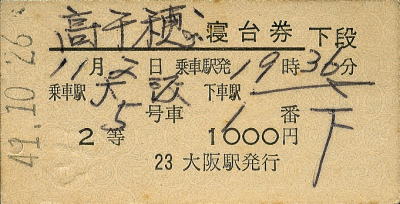 41.10.26
高千穂 寝台券 下段
11月2日 乗車駅発 19時36分
乗車駅 大阪 下車駅
5号車 1番下
2等 1000円
23 大阪駅発行